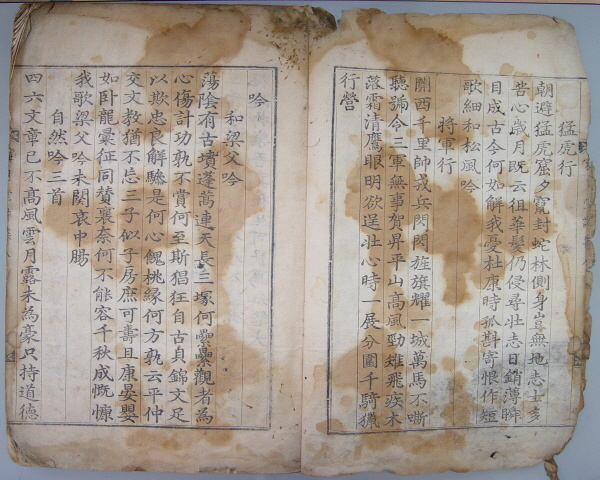 猛虎行
朝避猛虎窟夕竄封蛇林側身豈無地志士多
苦心歲月旣云徂華髮仍侵尋壯志日銷薄瞬
目成古今何如解我憂杜康時孤斟寄恨作短
歌細和松風吟
將軍行
關西千里帥戎兵閃閃旌旗耀一城萬馬不嘶
聽號令三軍無事賀昇平山高風勁雉飛疾木
落霜淸鷹眼明欲逞壯心時一展分圍千騎獵
行營
吟
和梁父吟
蕩陰有古墳蓬蒿連天長三塚何纍纍觀者爲
心傷計功孰不賞何至斯猖狂自古眞錦文足
以欺忠良解驂是何心餽桃緣何方孰云平仲
交文敎猶不忘三子似子房庶可壽且康晏嬰
如臥龍彙征同贊襄奈何不能容千秋成慨慷
我歌梁父吟未闋哀中腸
自然吟三首
四六文章已不高風雲月露未爲豪只持道德